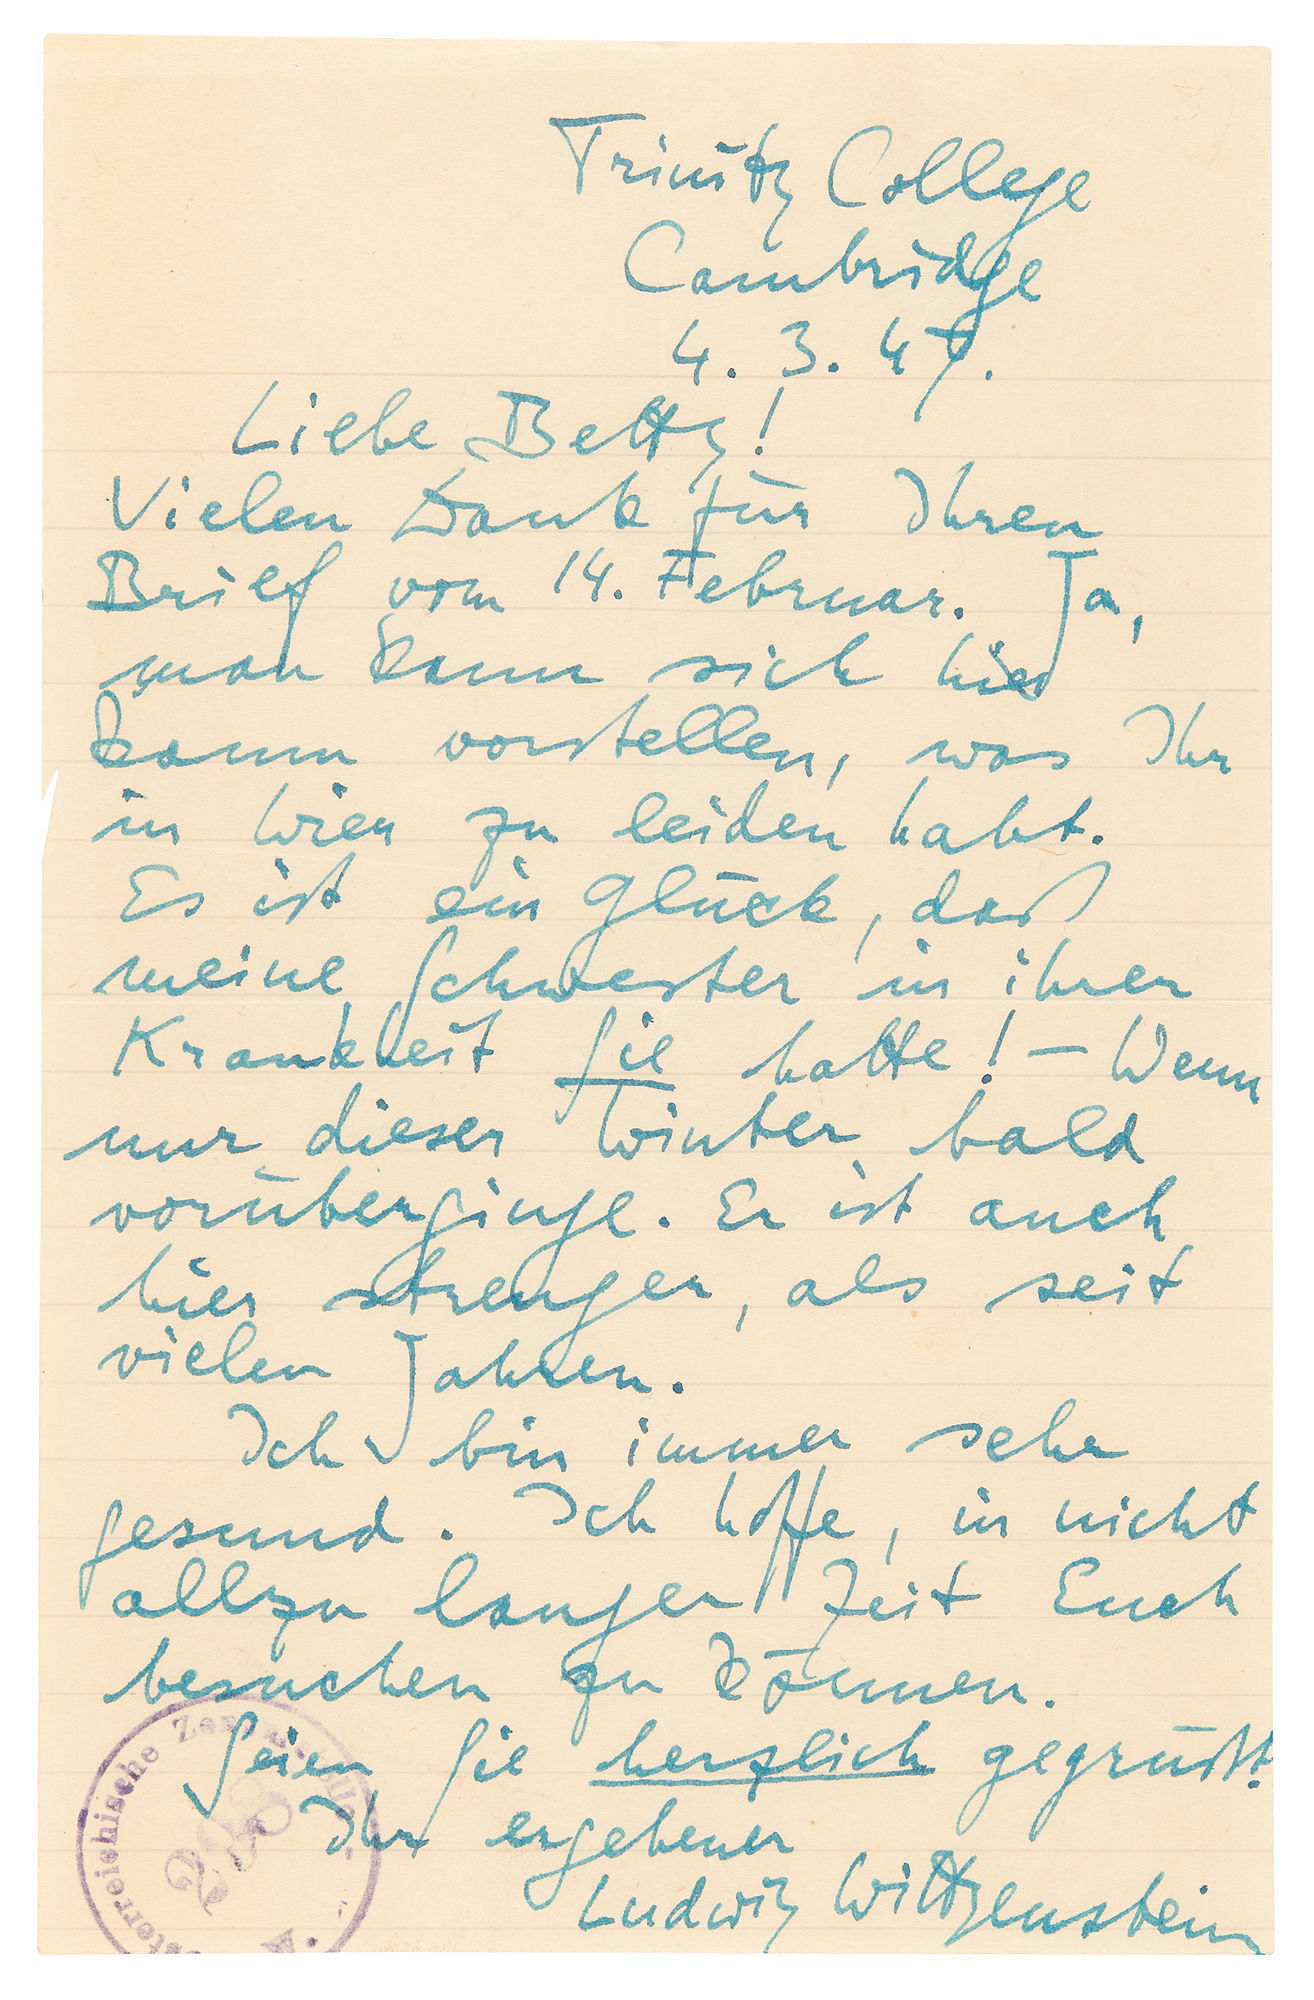 Trinity College
Cambridge
4. 3. 47.
Liebe Betty!
Vielen Dank für Ihren
Brief vom 14. Februar. Ja,
man kann sich hier
kaum vorstellen, was Ihr
in Wien zu leiden habt.
Es ist ein Glück, daß
meine Schwester in ihrer
Krankheit Sie hatte! — Wenn
nur dieser Winter bald
vorüberginge. Er ist auch
hier strenger, als seit
vielen Jahren.
Ich bin immer sehr
gesund. Ich hoffe, in nicht
allzu langer Zeit Euch
besuchen zu können.
Seien Sie herzlich gegrüßt.
Ihr ergebener
Ludwig Wittgenstein
terreichische
298